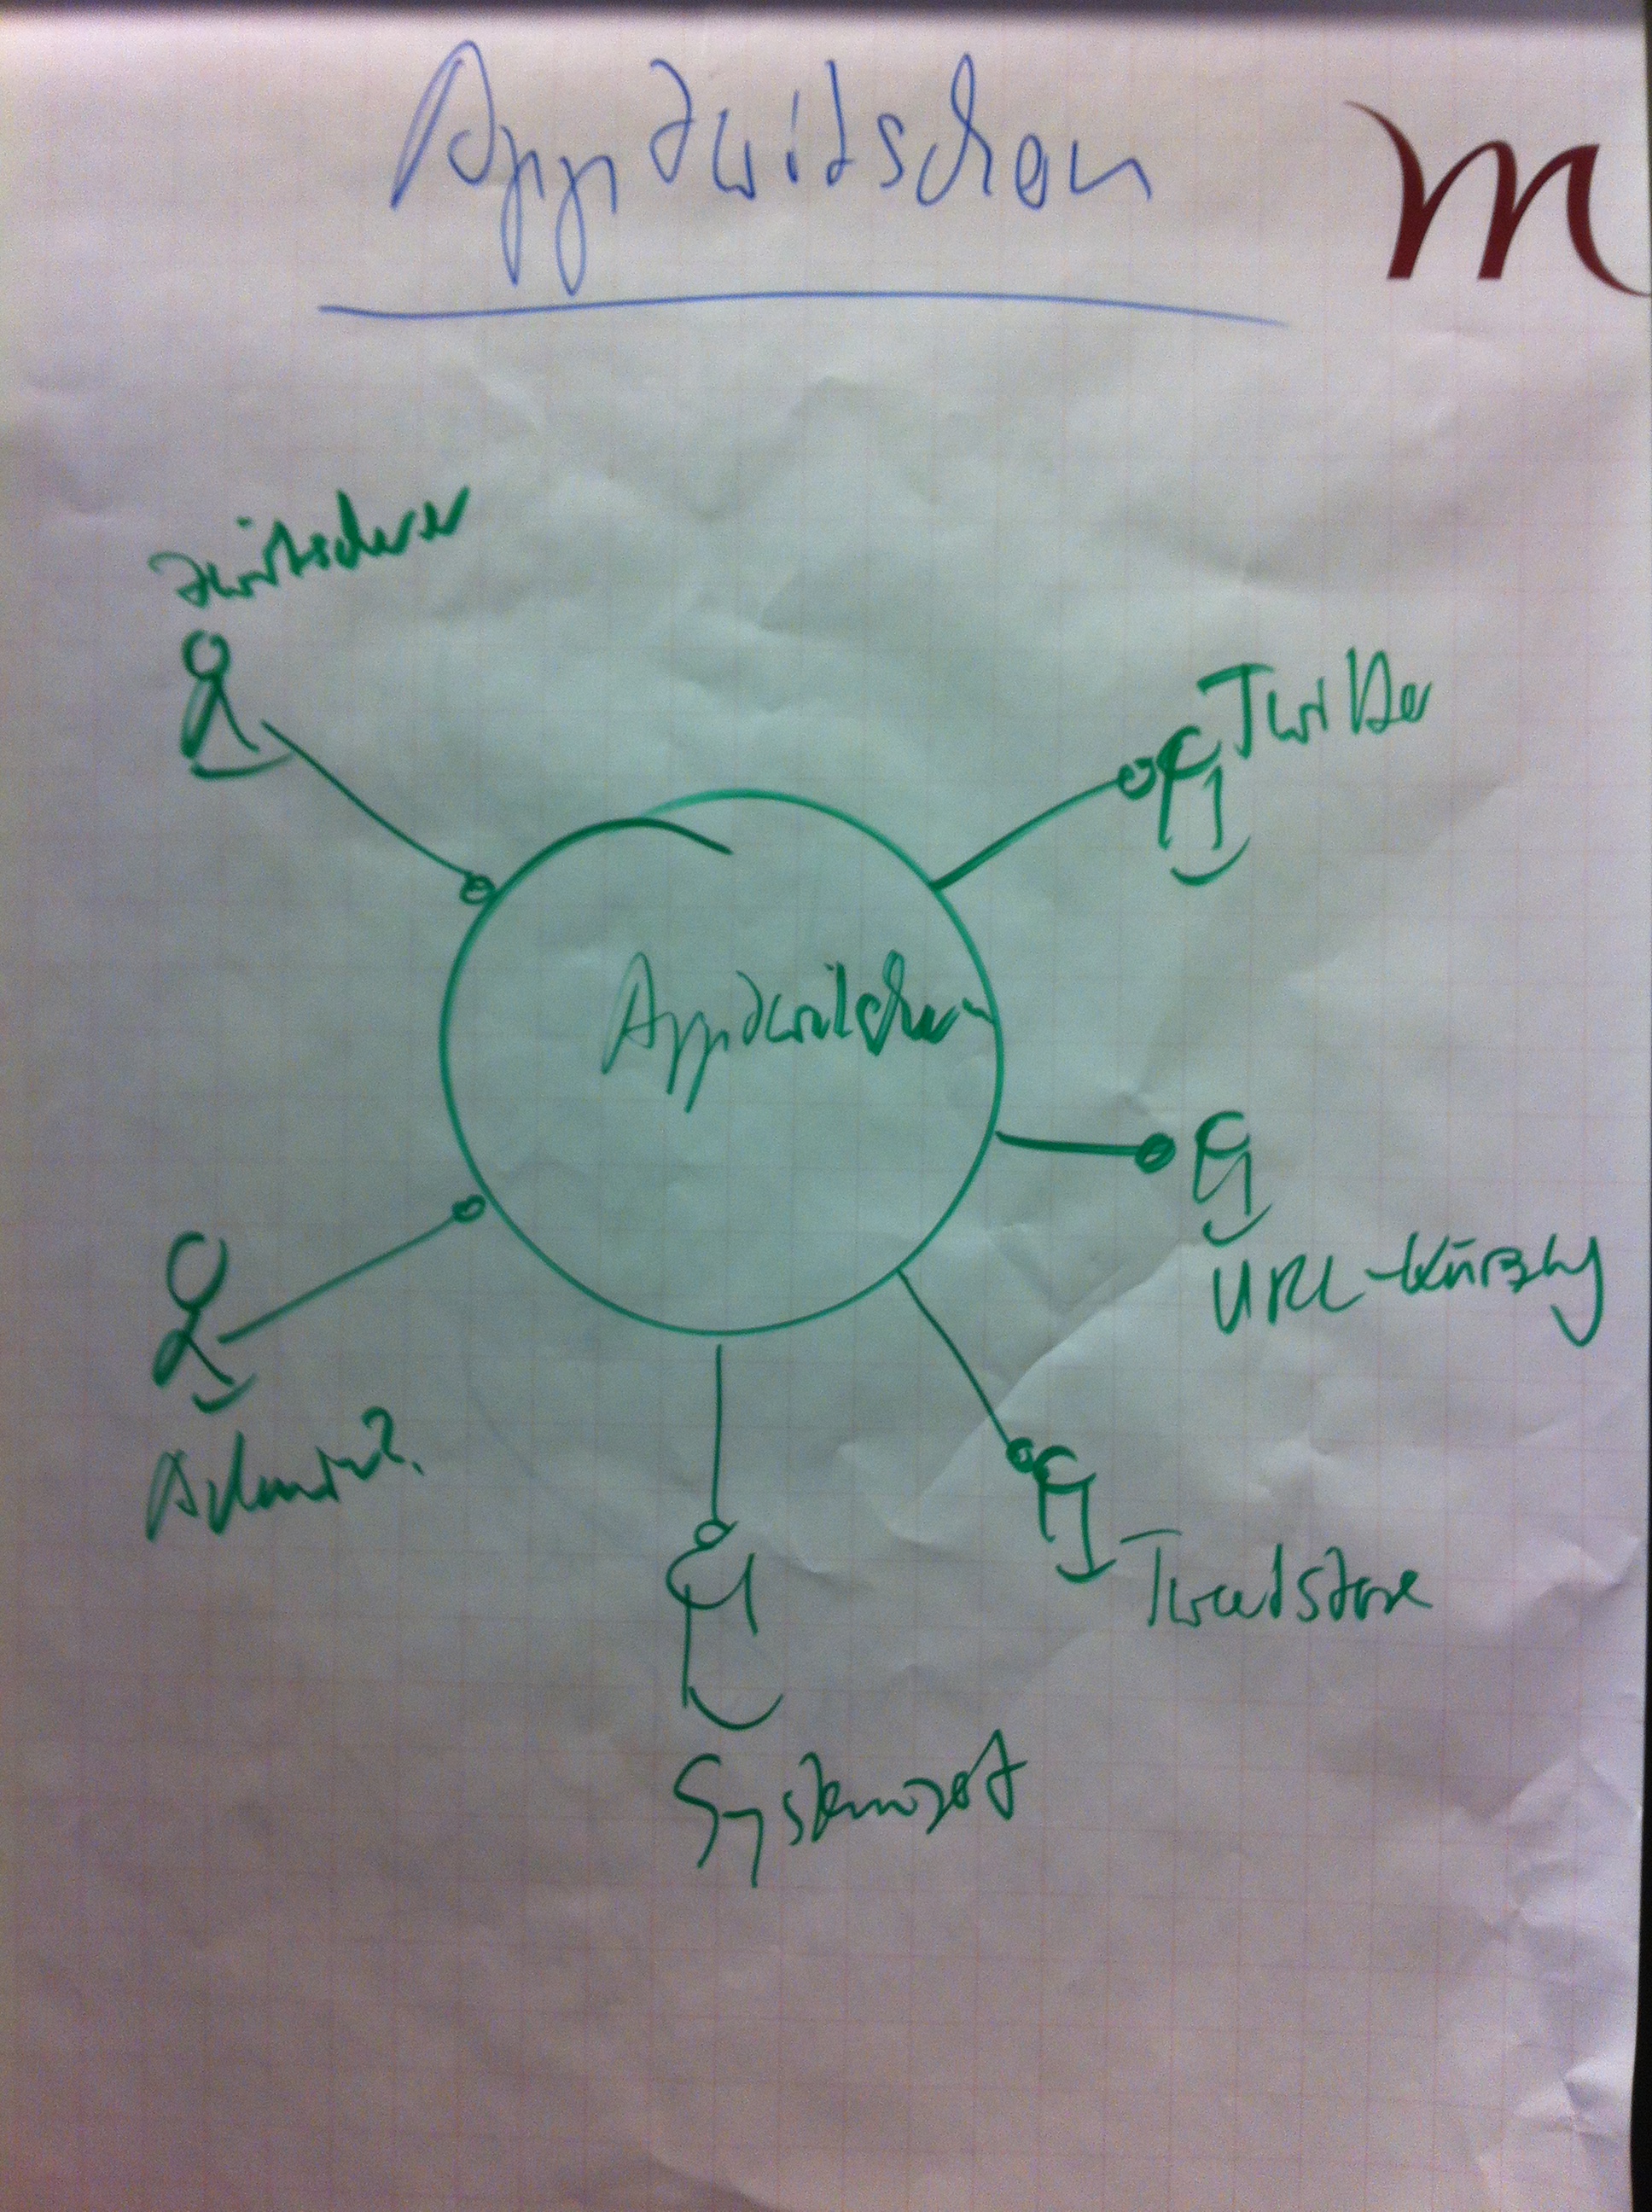 Appzwitschern
m
Zwitscherer
Twitter
Appzwitschern
URL-Kürzung
Admin?
Tweetstore
Systemzeit